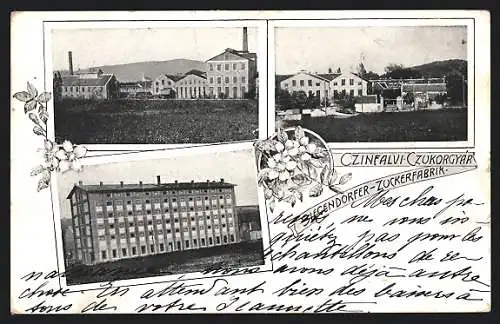 CZINFALVI-CZUKORGYÁR
SIEGENDORFER-ZUCKERFABRIK.
Mes chas pe-
tits ne vous in-
quiétez pas pour les
échantillons de se-
nous avons déjà autre
chose. En attendant bien des baisers à
tous de votre Jeannette.